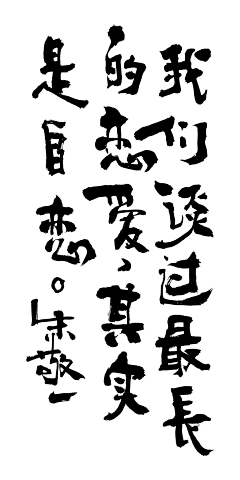 我们谈过最長
的恋爱，其实
是自恋。朱敬一